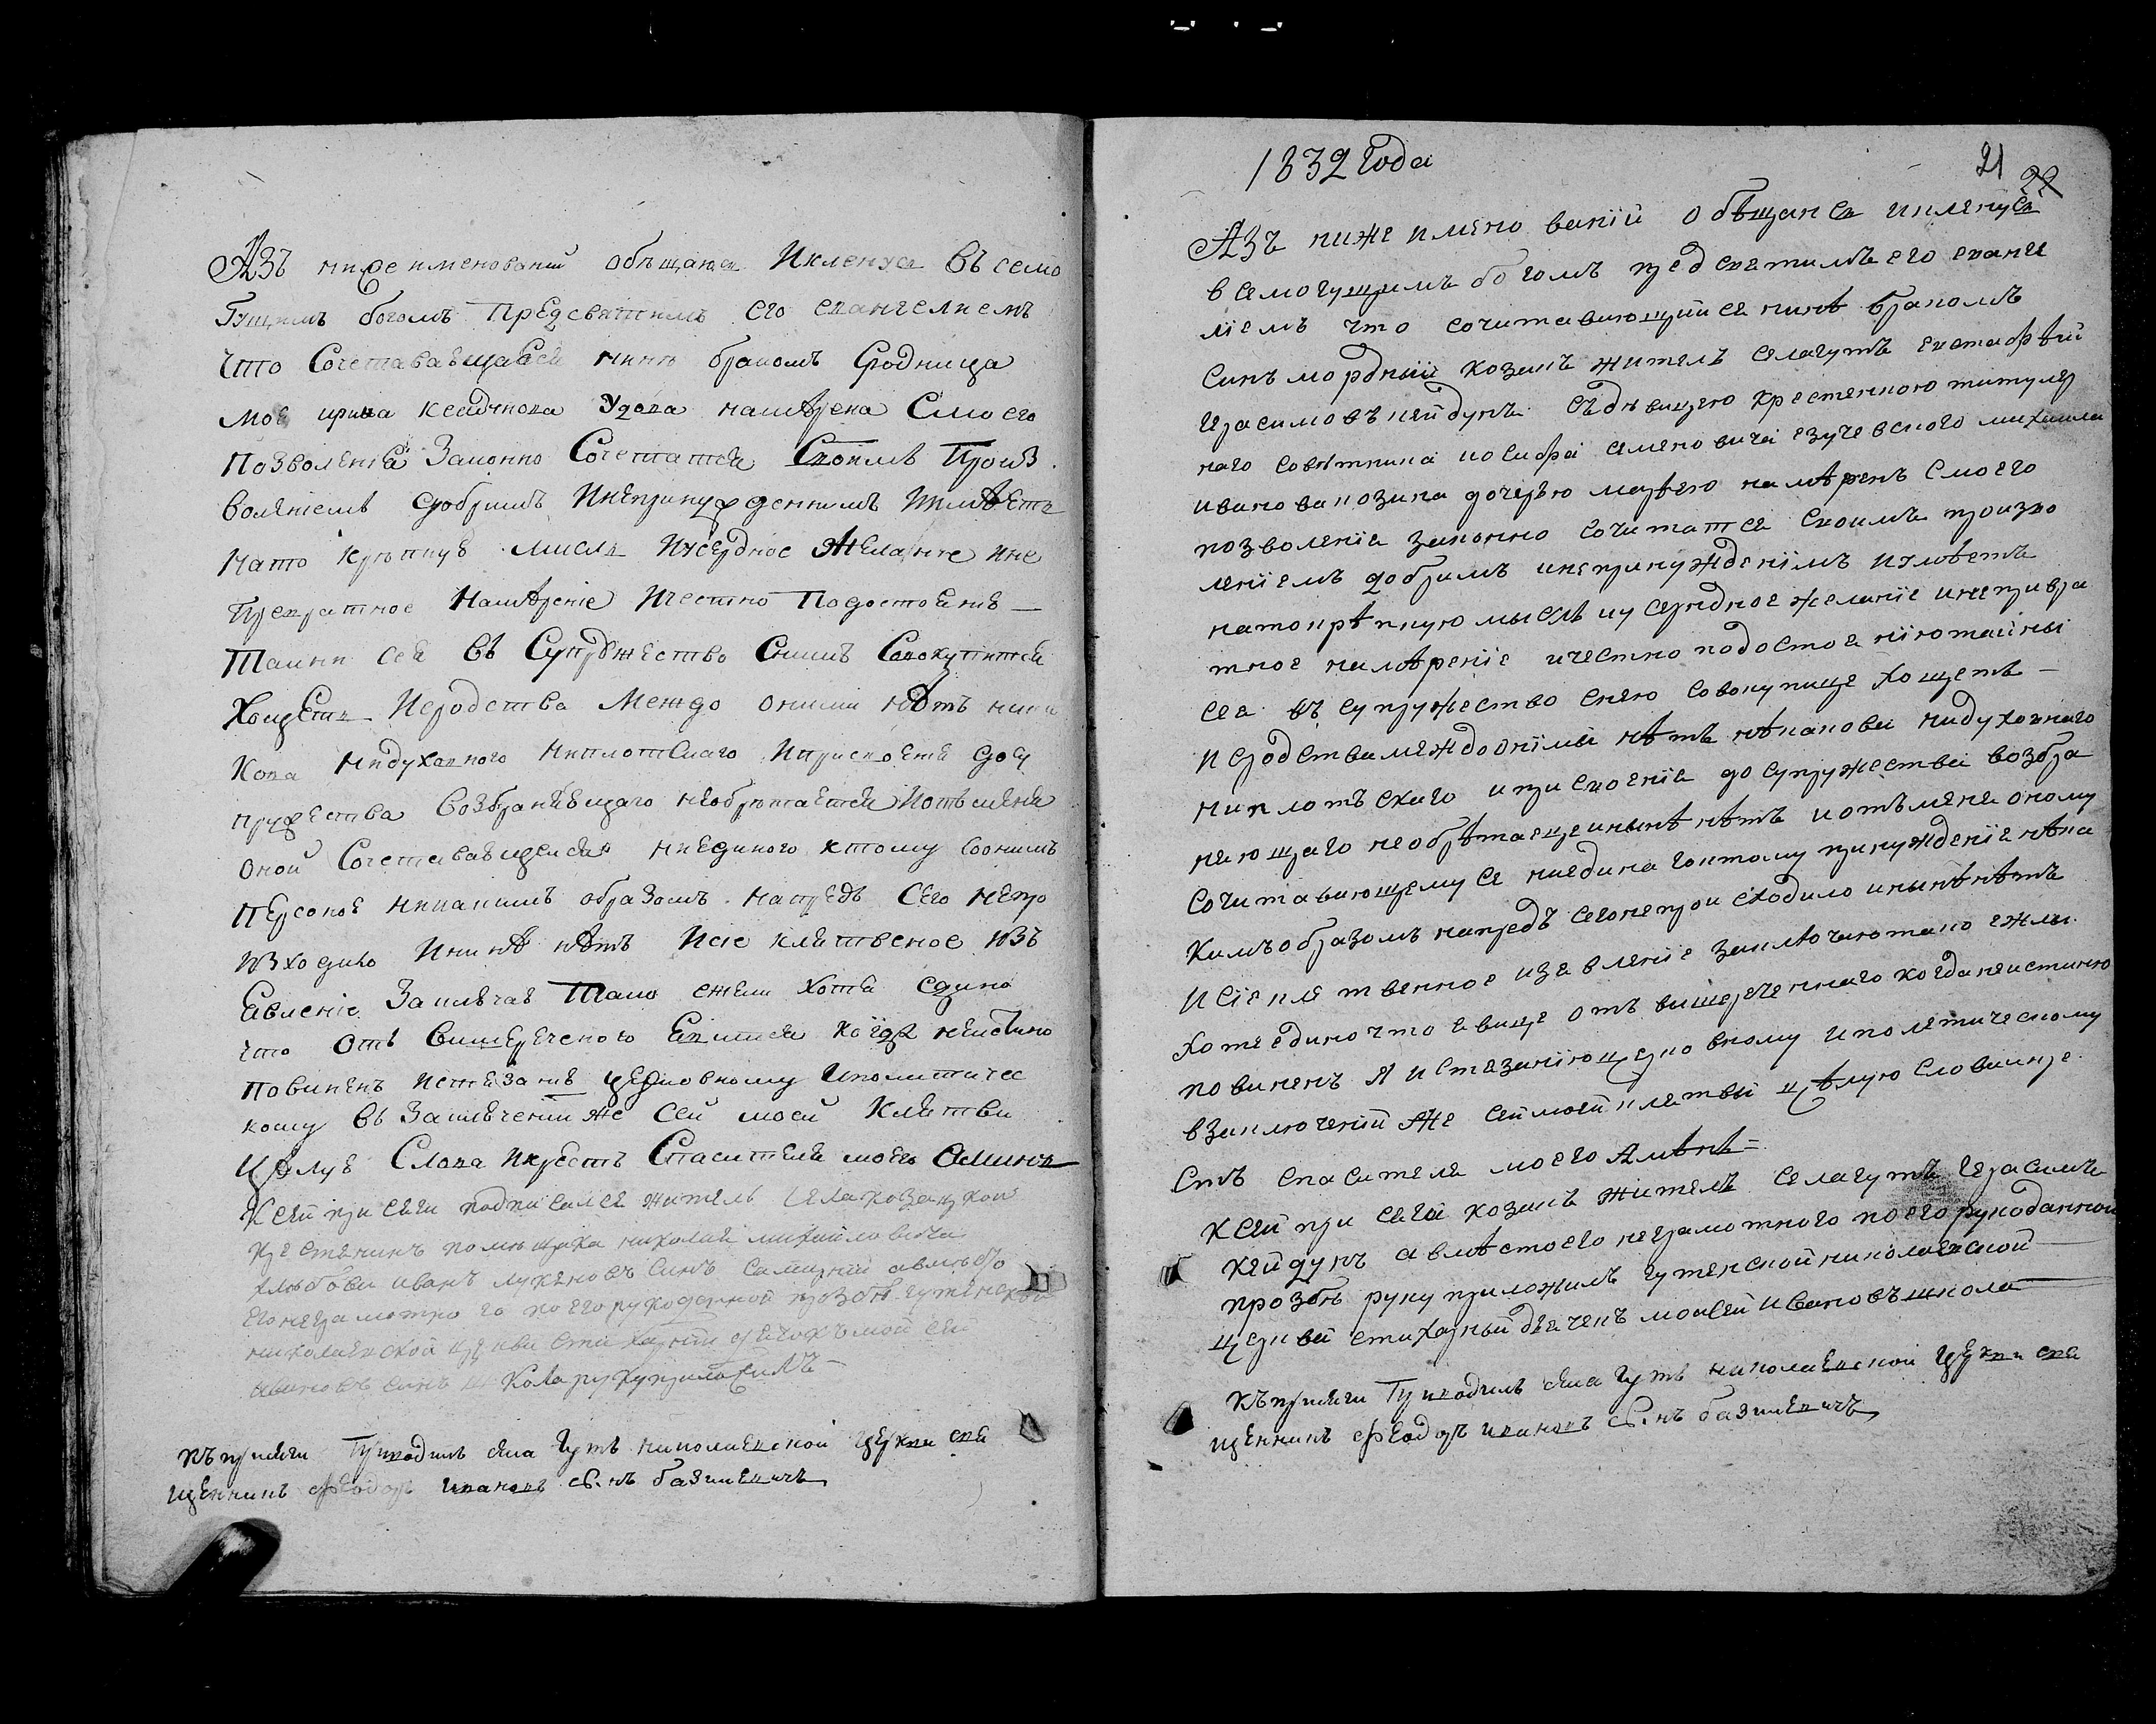 Азъ нижеименований обѣщаюся Икленуся Въсемо
Гущимъ богомъ Предсвятимъ его евангелиемъ
что Сочетаваящаяся нинѣ бракомъ Сродница
моя ирина Удова намѣрена Смоего
Позволенія Законно Сочетатся Своимъ Произ
воленіемъ Здобримъ Инепринужденнимъ Имѣетъ
Нато крѣпкую мисль Иусердное Желание ине
Превратное Намѣреніе Ичестно Подостоянию
Таини сея Въ Супружество Снимъ Совокупитися
Хощетъ Исродства Междо оними нѣтъ ника
кова Нидуховного Ниплотскаго Иприсвоения досу
пружества Возбраняющаго необрѣтается Иотъменя
оной Сочетававщейся ниединого ктому Соонимъ
Персоное никакимъ образомъ напредъ Сего непро
изходило Инине нѣтъ Исіе клятвеное изъ
Евленіе Заключаю Тако ежели хотя едино
что Отъ Вишереченого Евится когда неистино
Повиненъ истезаню церковному Иполитичес
кому Въ Заключении же Сей моей Клятви
Цѣлую Слова Икрестъ Спасителя моего Аминь
Ксей присяги подписался житель села козацкои
крестянинъ помѣщика николая михайловича
иванъ синъ авмѣсто
егонеграмотного поегорукоданной прозбѣ гутянской
николаевской церкви стихарний дячокъ мойсей
ивановъ синъ Школа рукуприложилъ
Къприсяги Приводилъ села Гутъ николаевской Церкви свя
щенникъ Феодоръ ивановъ Синъ базилевичъ
1832 Года
21
22
Азъ нижеименованій обѣщаюся икленуся
всемогущимъ богомъ предсвятимъ его еванге
ліемъ что сочитавиющийся нинѣ бракомъ
Синъ мордний козакъ жителъ селагутъ евстафѣй
Герасимовъ кейдунъ Съдѣвицею крестянкою титуляр
наго совѣтника иосифа семеновича езучевского михаила
иванова козина дочерью марѣею намѣренъ Смоего
позволенія законно сочитатся своимъ произво
леніемъ добримъ инепринужденімъ иімѣетъ
натокрѣпкую мыслъ иусердное желаніе инепривра
тное намѣреніе ичестно подостоянію тайны
сея въ супружество снею совокупице хощетъ
исродства междо оніми нѣтъ нѣкакова нидуховнаго
ниплотскаго иприсвоеніе до супружества возбра
неющаго необрѣтаецеинынѣ нѣтъ иотъменя оному
Сочитавиющемуся ниединагоктому принужденіе нѣка
кимъобразомъ напредъ сегонепроисходило инынѣнѣтъ
исіе клятвенное изявленіе заключаютако ежли
хотеедино что явице отъ вишереченнаго когданеистинно
повиненъ я истязаниюцерковному иполятическому
взаключеній же сеймоей клятвы цѣлую слова икре
стъ спасителя моего Амѣнь
ксей присяги козакъ жителъ селагутъ герасимъ
кейдунъ авмѣстоего неграмотного поегорукоданной
прозбѣ руку приложилъ гутянской николаевской
церкви стихарный дяченъ моисей ивановъ школа
Къприсяги Приводилъ села Гутъ николаевской Церкви свя
щенникъ Феодоръ ивановъ Синъ базилевичъ